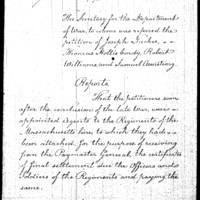 The Secretary for the Department
of War, to whom was referred the
petition of Joseph Tucker,
Thomas Hollis Condy, Robert
Williams and Samuel Armstrong.
Reports
That the petitioners soon
after the conclusion of the late War, were
appointed Agents to the Regiments of the
Massachusetts line to which they had
been attached, for the purpose of receiving
from the Paymaster General, the certificates
of final settlement due the Officers and
Soldiers of the Regiments and paying the
same.